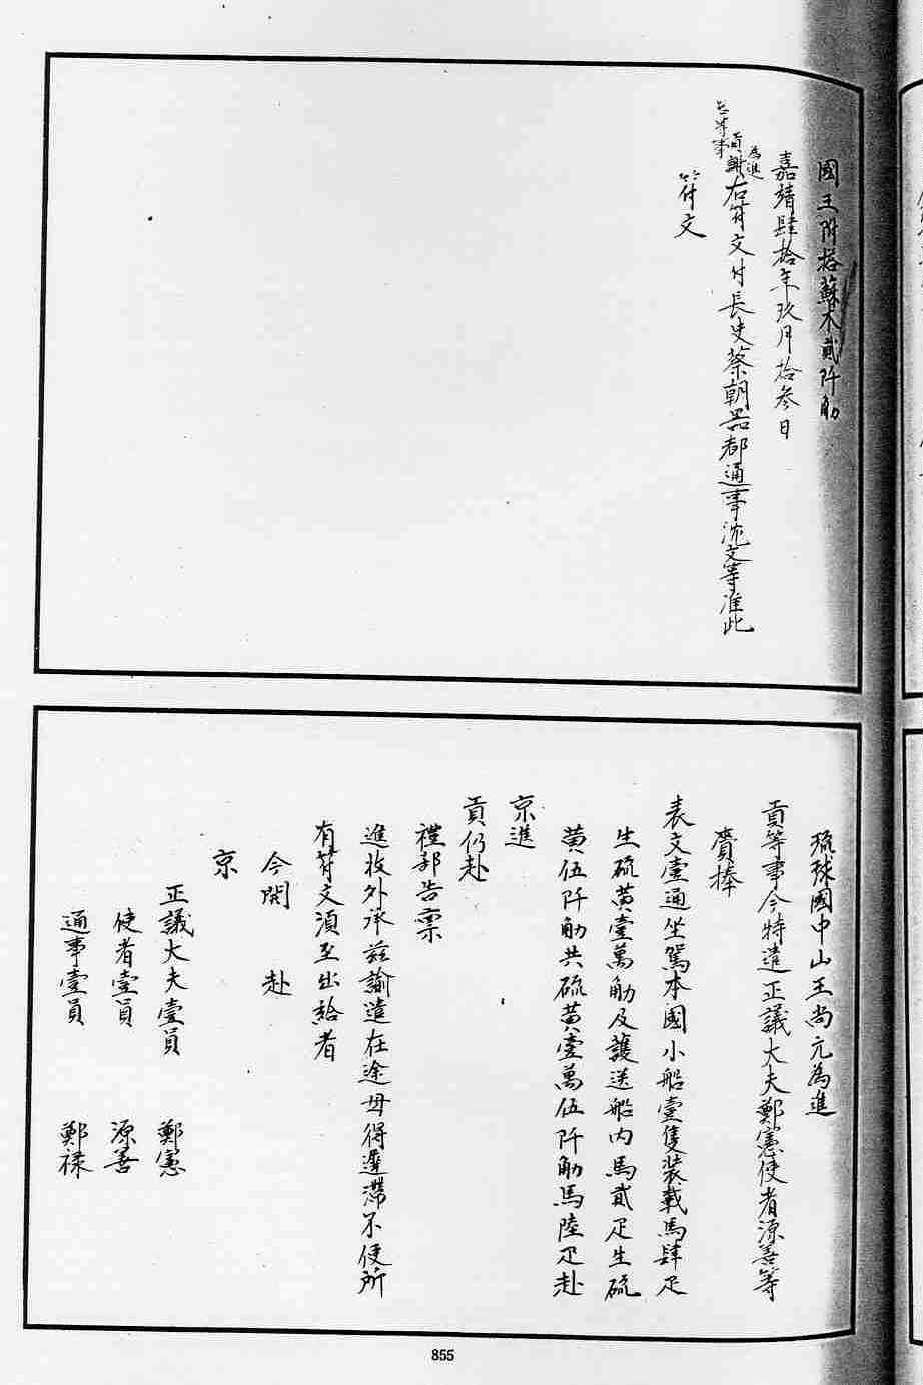 國王附搭蘇木貳阡觔
嘉靖肆拾年玖月拾參日
右符文付長史蔡朝器都通事沈文等准此
為進
貢謝
恩等事
符文
琉球國中山王尚元為進
貢等事今特遣正議大夫鄭憲使者源善等
賫捧
表文壹通坐駕本國小船壹隻裝載馬肆疋
生硫黄壹萬觔及護送船内馬貳疋生硫
黄伍阡觔共硫黄壹萬伍阡觔馬陸疋赴
京進
貢仍赴
禮部告稟
進收外承茲諭遣在途毋得遲滯不便所
有符文須至出給者
今開　赴
京
正議大夫壹員　鄭憲
使者壹員　源善
通事壹員　鄭祿
855